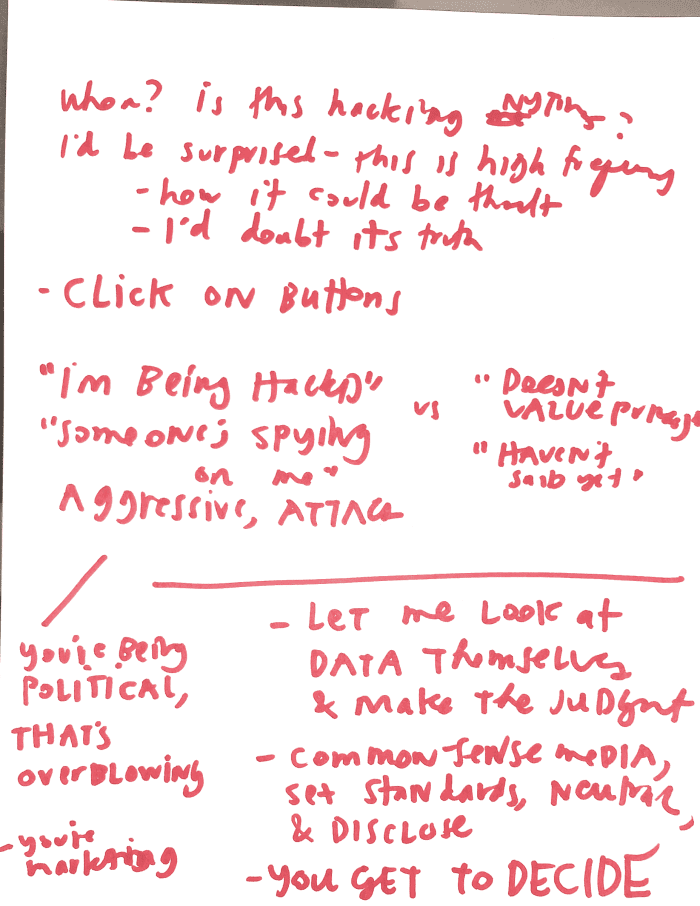 Whoa? is this hacking NYTimes?
I'd be surprised - this is high frequency
- how it could be theft
- I'd doubt its truth
- CLick on Buttons
"I'm Being Hacked"
"Someone's spying
on me"
Aggressive, ATTACK
vs
"Doesn't
VALUE privacy"
"HAVEN't
said yet"
you're Being
POLITICAL,
THAT'S
overBLOWING
- you're
marketing
- LeT me Look at
DATA Themselves
& make the JuDgmt
- common sense meDIA,
set STANdards, Neutral,
& DISCLOSe
- YOU GET to DECIDE